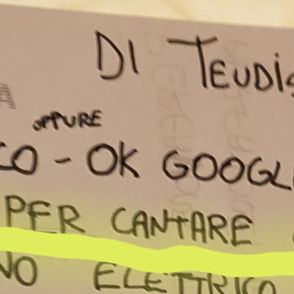 DI TEUDIS
OPPURE
CO - OK GOOGL
PER CANTARE
NO ELETTRICO